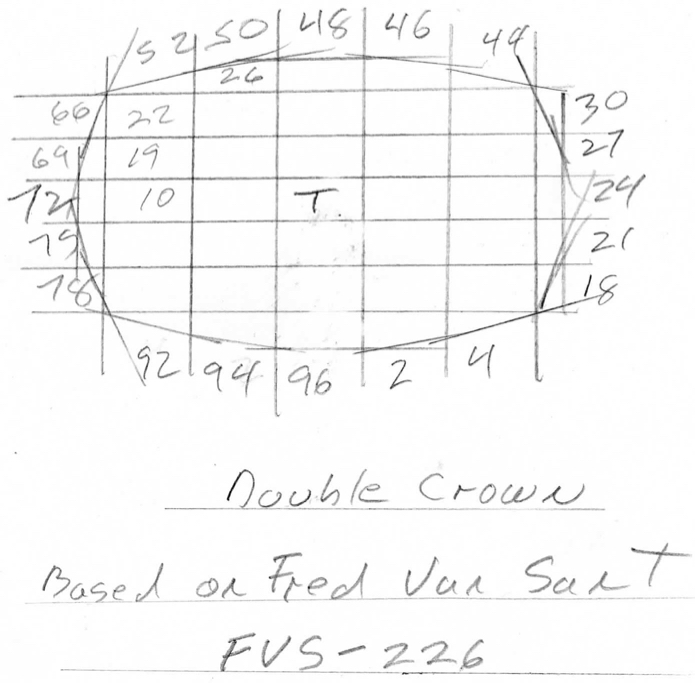 52 50 48 46 44
26
66 22 30
69 19 27
72 10 T. 24
75 21
78 18
92 94 96 2 4
Double Crown
Based on Fred Van Sant
FVS-226